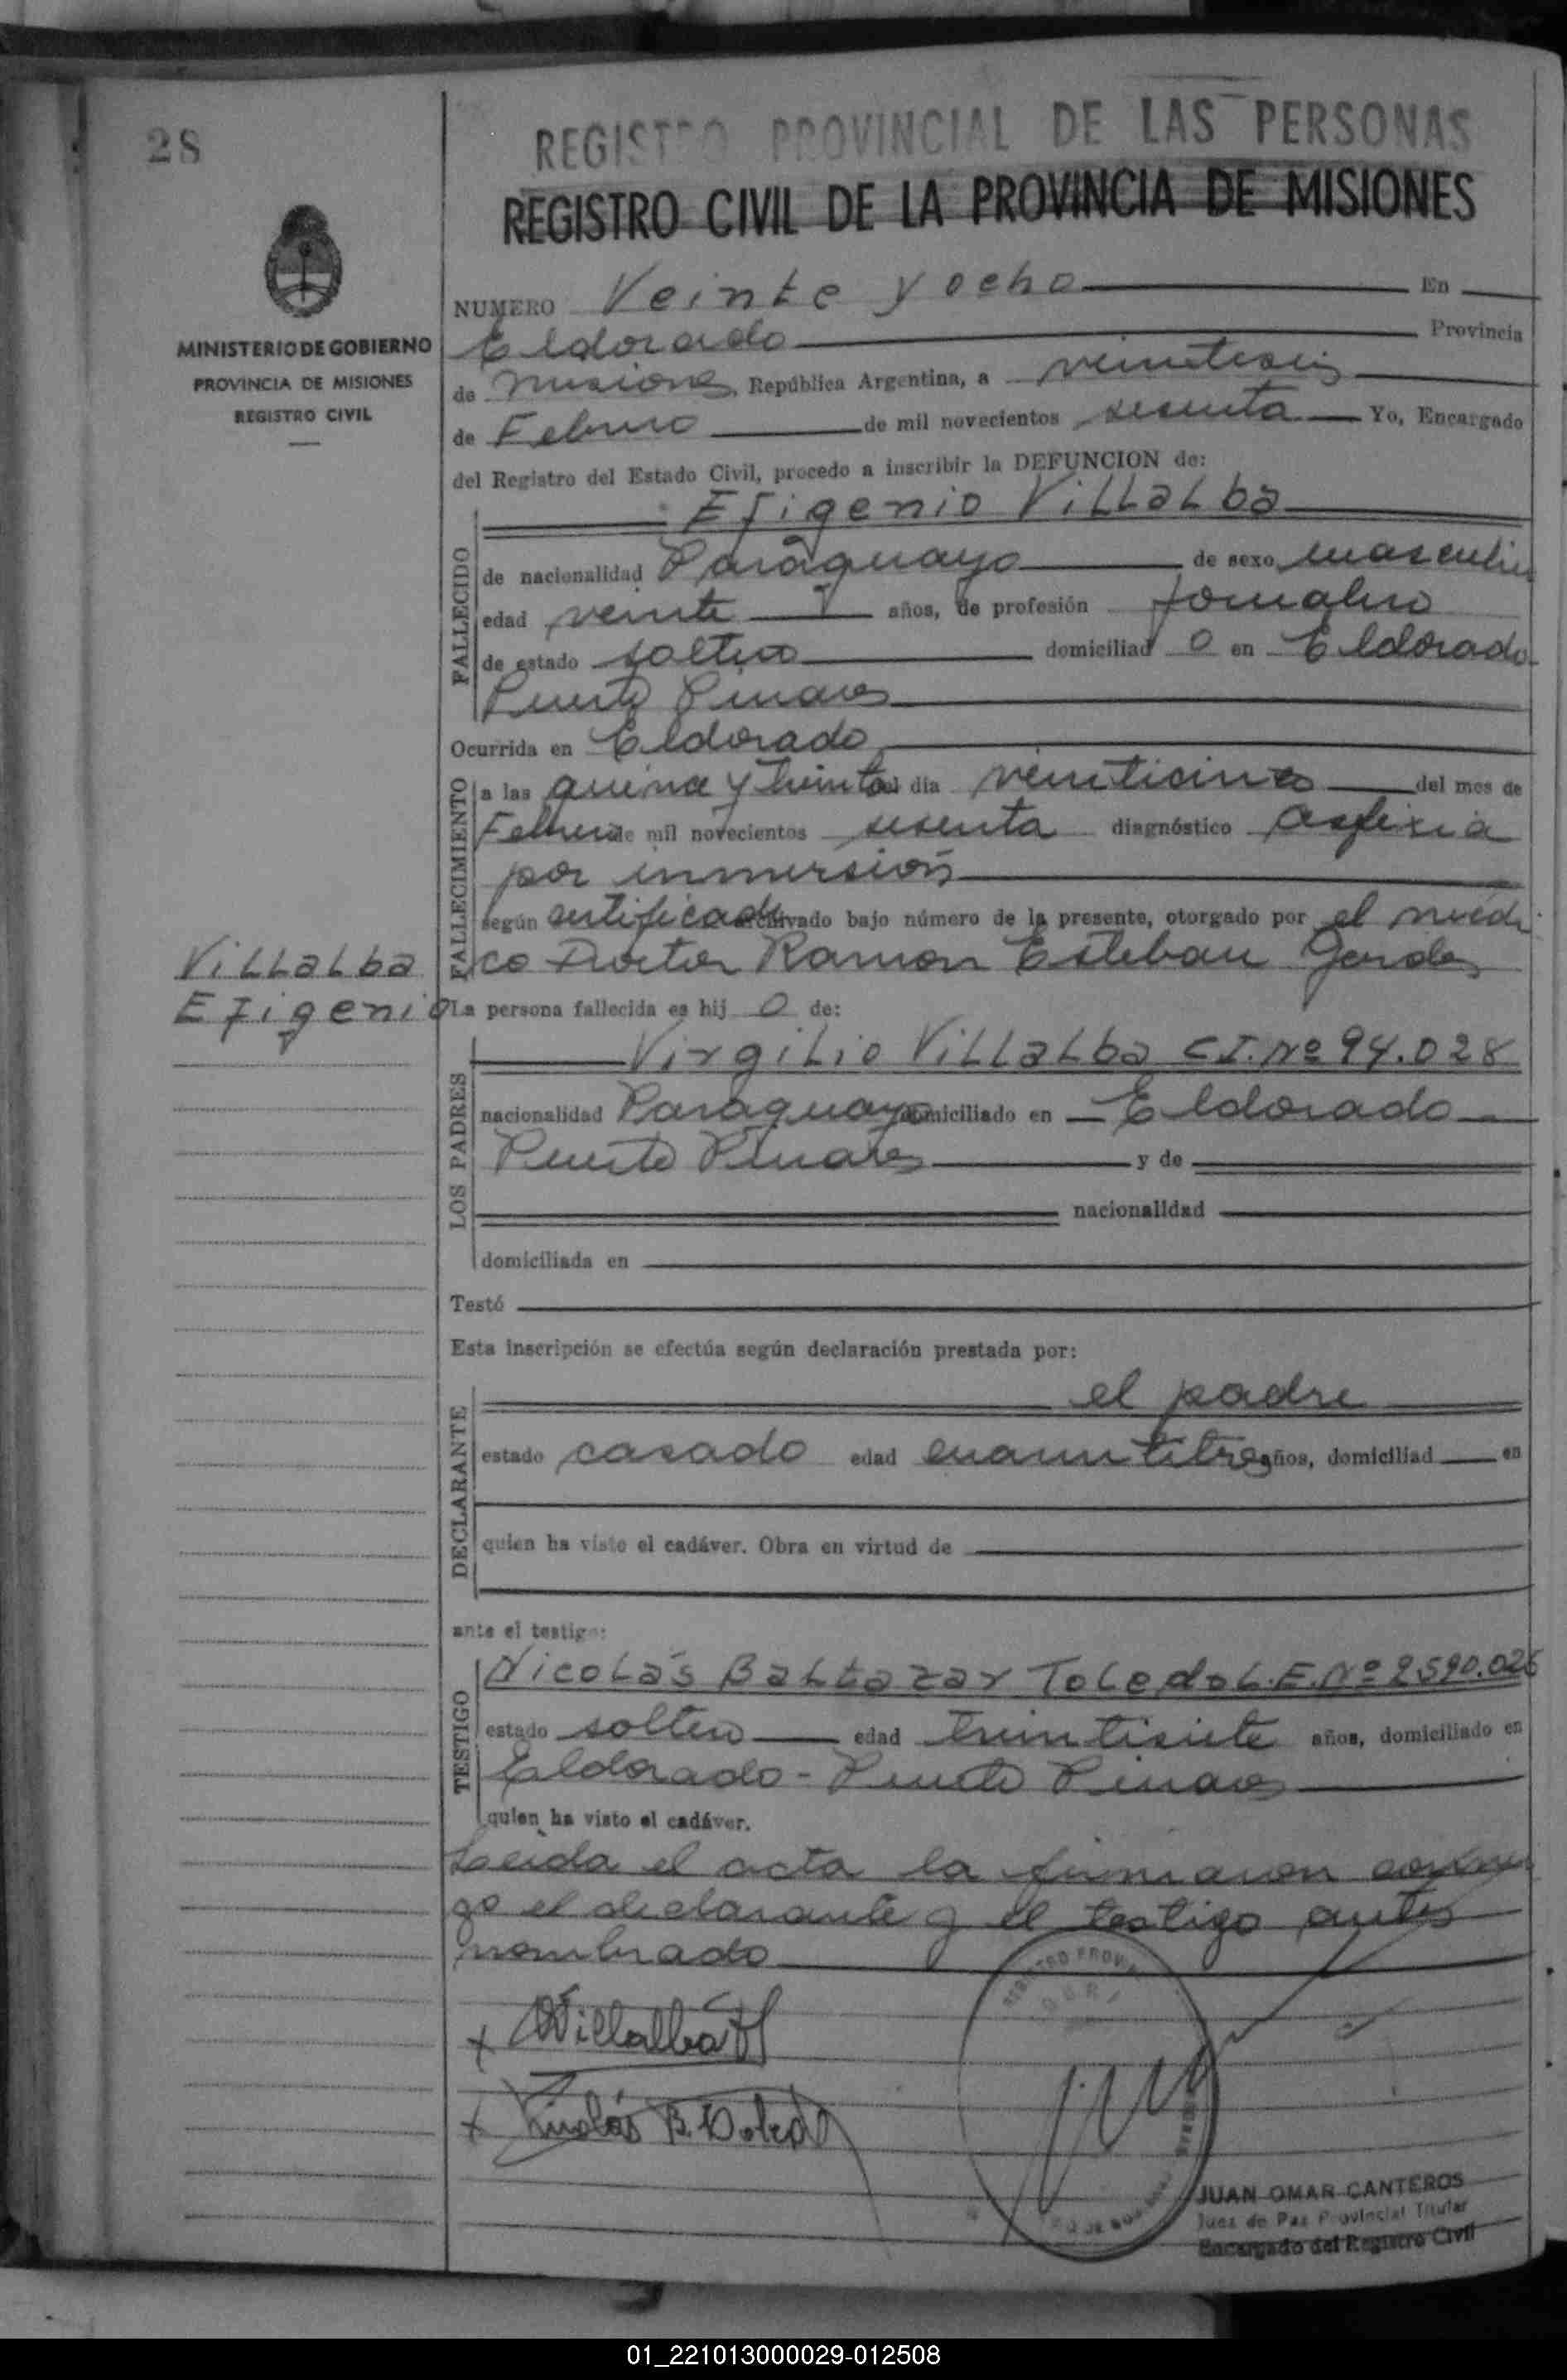 28
REGISTRO PROVINCIAL DE LAS PERSONAS
REGISTRO CIVIL DE LA PROVINCIA DE MISIONES
MINISTERIO DE GOBIERNO
PROVINCIA DE MISIONES
REGISTRO CIVIL
NUMERO Veinte y ocho En
Eldorado Provincia
de Misiones República Argentina, a veintiseis
de Febrero de mil novecientos sesenta Yo, Encargado
del Registro del Estado Civil, procedo a inscribir la DEFUNCION de:
Efigenio Villalba
FALLECIDO
de nacionalidad Paraguayo de sexo masculino
edad veinte años, de profesión Jornalero
de estado soltero domiciliad o en Eldorado
Puerto Pinares
Ocurrida en Eldorado
FALLECIMIENTO
a las quince y treinta del dia veinticinco del mes de
Febrero de mil novecientos sesenta diagnóstico Asfixia
por inmersión
según certificado archivado bajo número de la presente, otorgado por el médi
co Doctor Ramon Esteban
Villalba
Efigenio
La persona fallecida es hij o de:
LOS PADRES
Virgilio Villalba C.I. Nº 94.028
nacionalidad Paraguayo domiciliado en Eldorado
Puerto Pinares y de
nacionalidad
domiciliada en
Testó
Esta inscripción se efectúa según declaración prestada por:
DECLARANTE
el padre
estado casado edad cuarentitres años, domiciliad en
quien ha visto el cadáver. Obra en virtud de
ante el testigo:
TESTIGO
Nicolás Baltazar Toledo L.E. Nº 2.590.026
estado soltero edad treintisiete años, domiciliado en
Eldorado - Puerto Pinares
quien ha visto el cadáver.
Leida el acta la firmaron conmi
go el declarante y el testigo antes
nombrado
x Villalba
x Nicolás B. Toledo
JUAN OMAR CANTEROS
Juez de Paz Provincial Titular
Encargado del Registro Civil
01_221013000029-012508